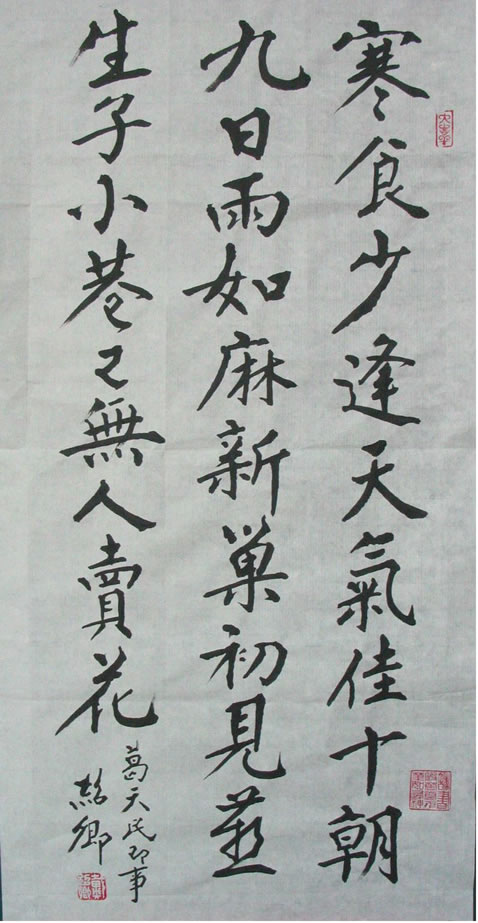 寒食少逢天氣佳十朝
九日雨如麻新巢初見燕
生子小巷已無人賣花
葛天民即事